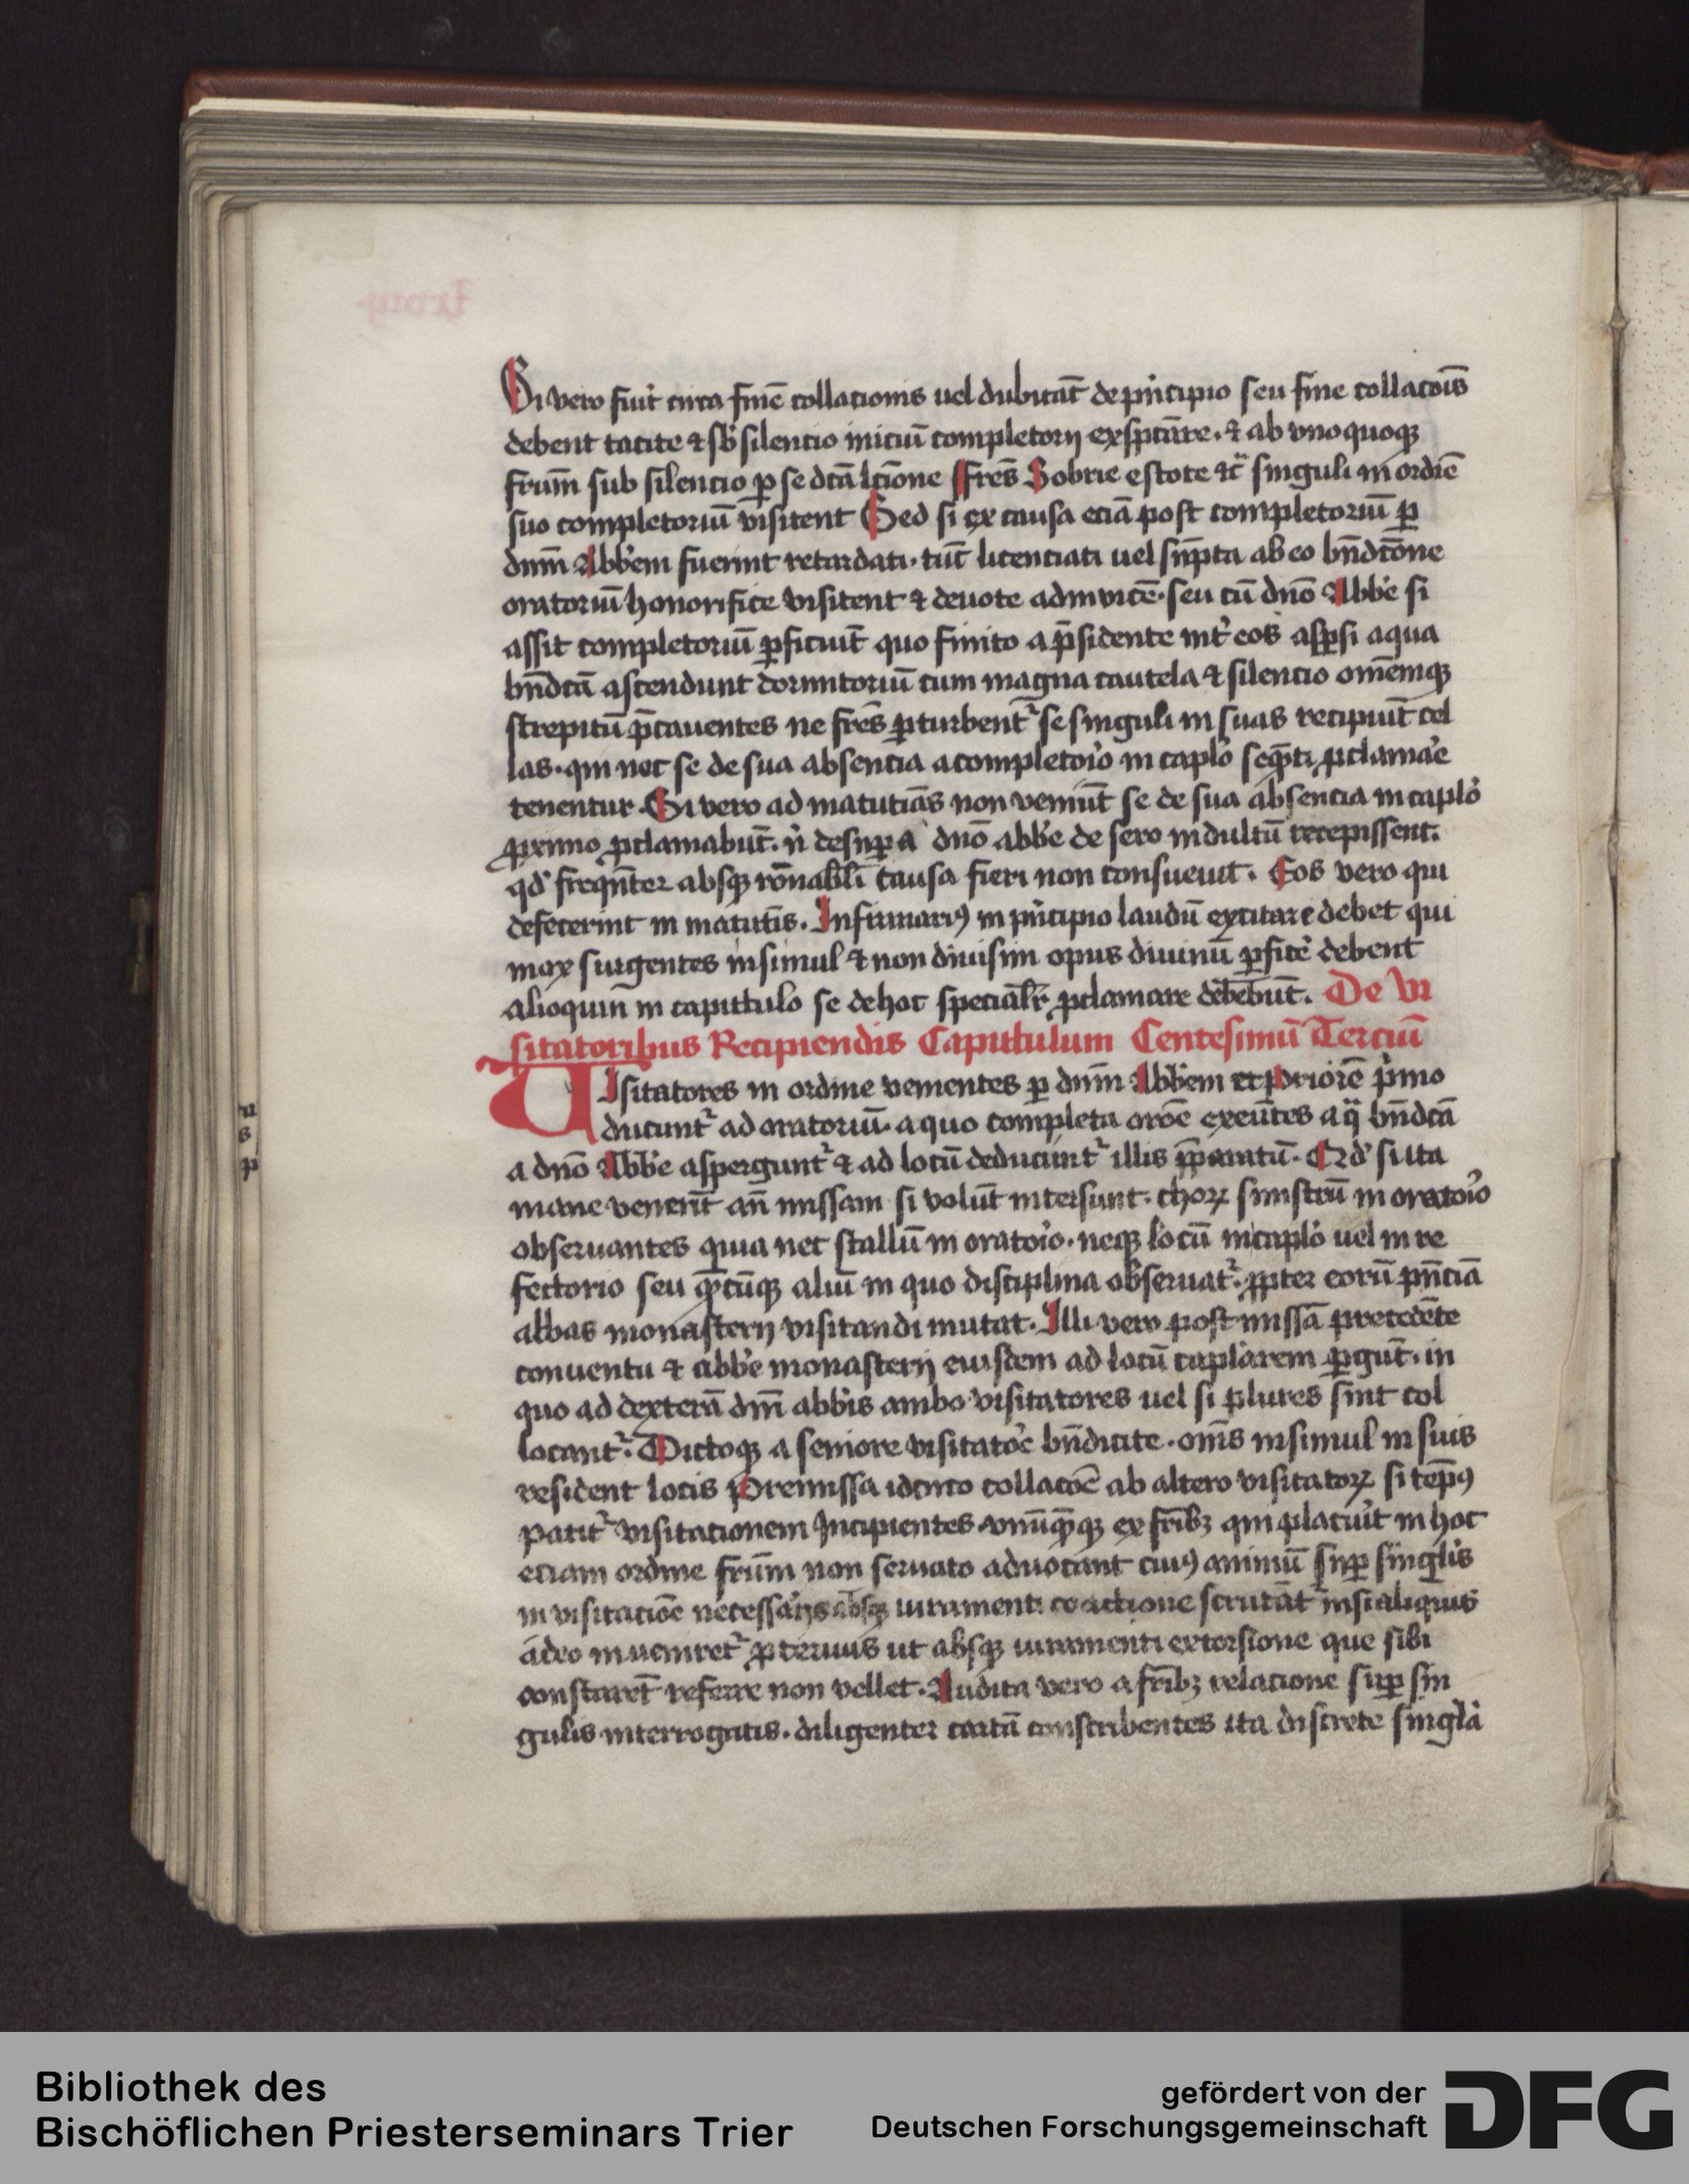 Si vero fuit circa finē collationis uel dubitāt de pncipio seu fine collacois
debent tacite ⁊ sb silencio iniciū completorij exspectare. ⁊ ab vnoquoqꝫ
frum sub silencio p se dcā lcione ffres Sobrie estote ⁊c̄ singuli in ordiē
suo completoriū visitent Sed si ex causa eciā post completoriū ꝑ
dnm Abbem fuerint retardati. tūc licenciati uel supta ab eo bndcōne
oratoriū honorifice visitent ⁊ deuote adinuicē. seu cū dno Abbe si
assit completoriū ꝑficiūt quo finito a psidente int eos aspsi aqua
bndcā ascendunt dormitoriū cum magna cautela ⁊ silencio omēmqꝫ
strepitū pcauentes ne fres ꝑturbent se singuli in suas recipiūt cel
las. qui nec se de sua absencia a completoio in caplo seqnti ꝓclamae
tenentur. Si vero ad matutias non veniūt se de sua absencia in caplo
ꝓximo ꝓclamabūt. n desup a dno abbe de sero indultū recepissent.
qd freqnter absqꝫ ronabli causa fieri non consueuit. Eos vero qui
defecerint in matutis. Infirmariꝰ in pncipio laudū excitare debet qui
mox surgentes insimul ⁊ non diuisim opus diuinū ꝑfice debent
alioquin in capitulo se de hoc specialr ꝓclamare debebūt. De Vi
sitatoribus Recipiendis Capitulum Centesimū Terciū
VIsitatores in ordine venientes ꝑ dnm Abbem et priorē pmo
ducunt ad oratoriū. a quo completa oroe exeūtes aq bndcā
a dno Abbe aspergunt ⁊ ad locū deducunt illis pparatū. Qd si ita
mane venerit an missam si volūt intersunt. choꝝ sinistrū in oratoio
obseruantes quia nec stallū in oratoio. neqꝫ locū in caplo uel in re
fectorio seu qcūqꝫ aliū in quo disciplina obseruat. ꝓpter eorū pnciā
abbas monasterij visitandi mutat. Illi vero post missā precedēte
conuentu ⁊ abbe monasterij eiusdem ad locū caplarem ꝑgūt. in
quo ad dexterā dni abbis ambo visitatores uel si plures sint col
locant. Dictoqꝫ a seniore visitatoe bndicite. oms insimul in suis
resident locis Premissa idcirco collacoe ab altero visitatoꝝ si tepꝰ
patit visitationem Incipientes. vnūqqꝫ ex fribꝫ qui placuit in hoc
eciam ordine frum non seruato aduocant cuiꝰ animū sup singlis
in visitacioe necessarijs absqꝫ iuramenti coactione scrutāt nisi aliquis
adeo inueniret ꝓteruus ut absqꝫ iuramenti extorsione que sibi
constaret referre non vellet. Audita vero a fribꝫ relacione sup sin
gulis interrogatis. diligenter cartū conscribentes ita discrete singla
Bibliothek des
Bischöflichen Priesterseminars Trier
gefördert von der
Deutschen Forschungsgemeinschaft
DFG